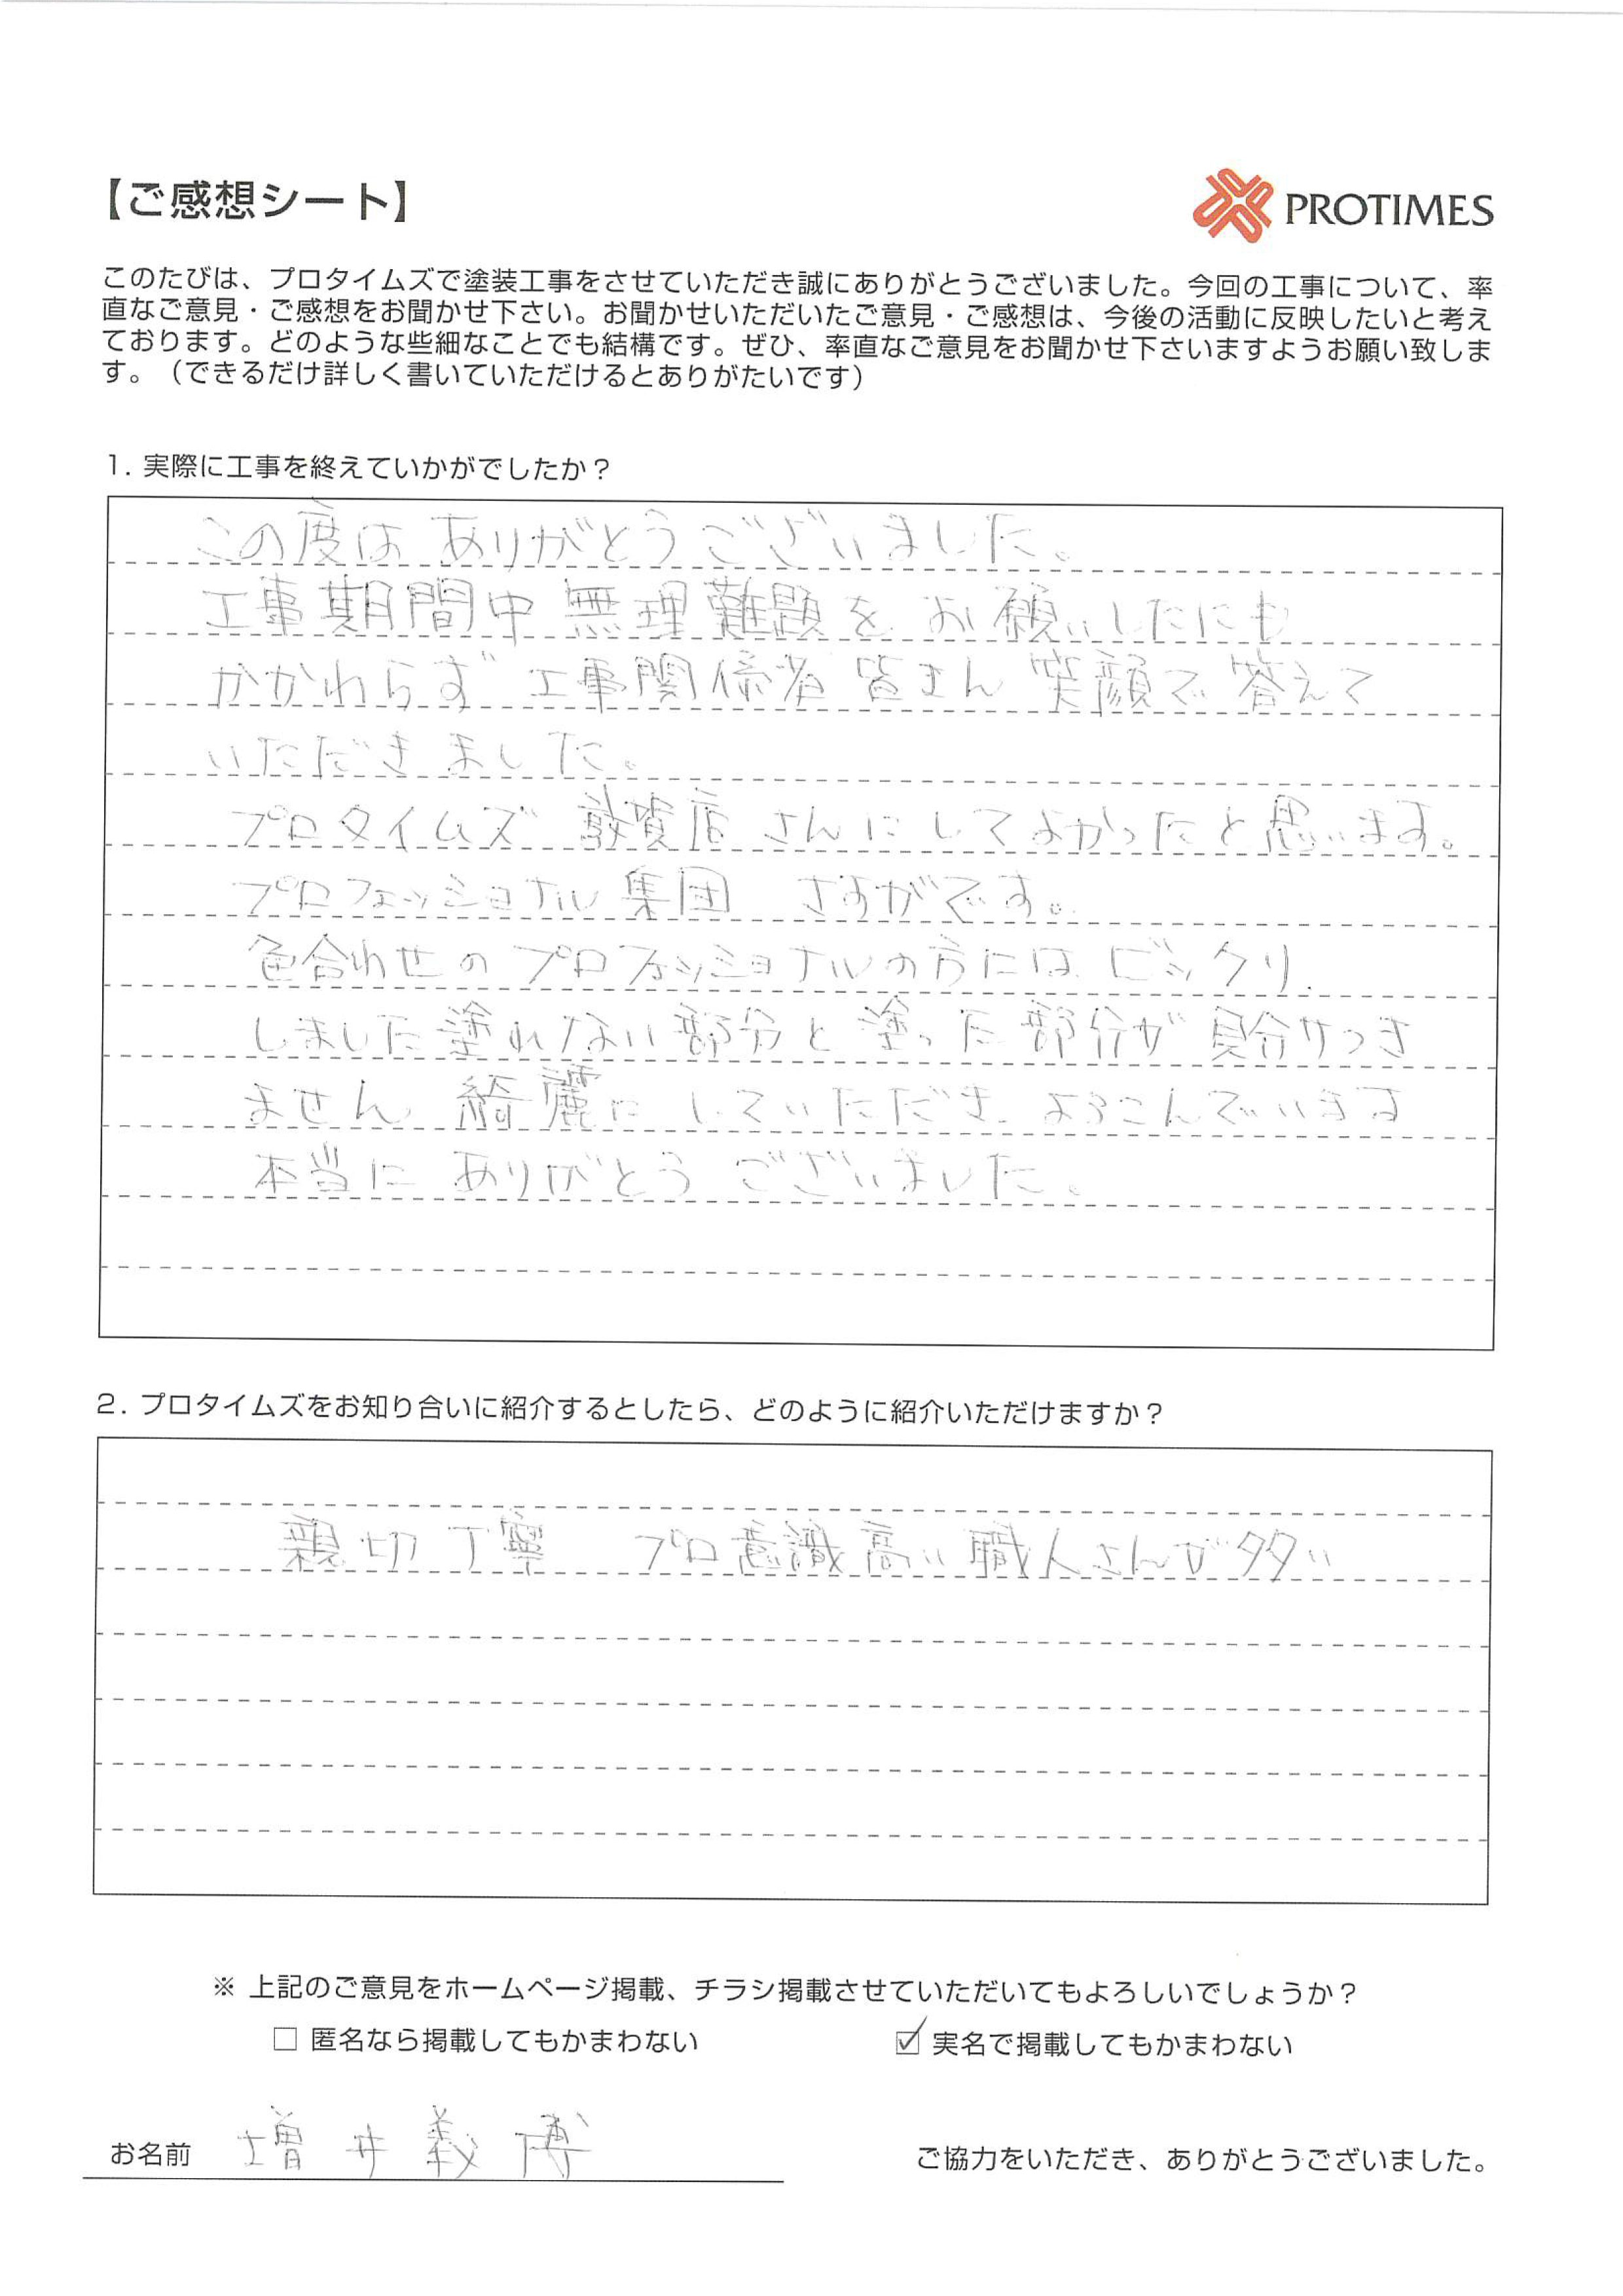 【ご感想シート】
PROTIMES
このたびは、プロタイムズで塗装工事をさせていただき誠にありがとうございました。今回の工事について、率
直なご意見・ご感想をお聞かせ下さい。お聞かせいただいたご意見・ご感想は、今後の活動に反映したいと考え
ております。どのような些細なことでも結構です。ぜひ、率直なご意見をお聞かせ下さいますようお願い致しま
す。（できるだけ詳しく書いていただけるとありがたいです）
1. 実際に工事を終えていかがでしたか？
この度はありがとうございました。
工事期間中無理難題をお願いしたにも
かかわらず工事関係者皆さん笑顔で答えて
いただきました。
プロタイムズ敦賀店さんにしてよかったと思います。
プロフェッショナル集団 さすがです。
色合わせのプロフェッショナルの方にはビックリ
しました塗れない部分と塗った部分が見分けつき
ません 綺麗にしていただき よろこんでいます
本当にありがとうございました。
2. プロタイムズをお知り合いに紹介するとしたら、どのように紹介いただけますか？
親切丁寧 プロ意識高い職人さんが多い
※ 上記のご意見をホームページ掲載、チラシ掲載させていただいてもよろしいでしょうか？
□ 匿名なら掲載してもかまわない ☑ 実名で掲載してもかまわない
お名前 増井義博
ご協力をいただき、ありがとうございました。